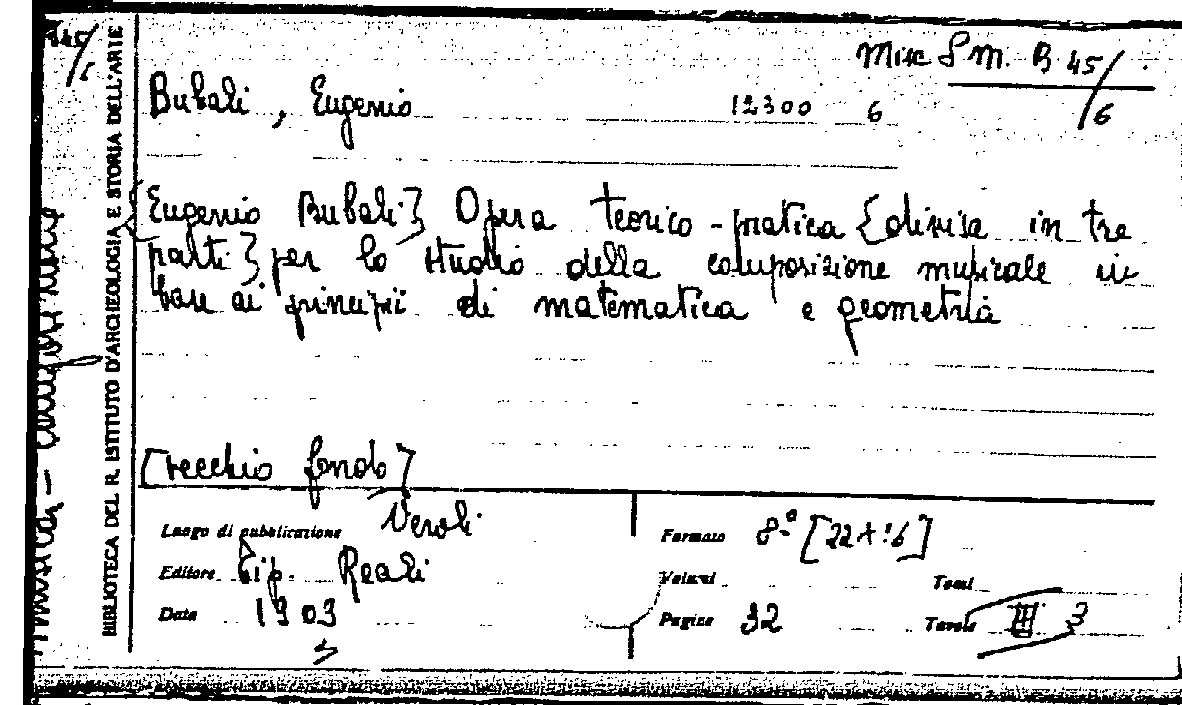 Misc S m. B 45/6
Bubali, Eugenio 12300 6
{Eugenio Bubali} Opera teorico-pratica {divisa in tre
parti} per lo studio della composizione musicale in
base ai principi di matematica e geometria
[vecchio fondo]
Luogo di pubblicazione Veroli
Formato 8° [22×16]
Editore Tip. Reali
Volumi
Tomi
Data 1903
Pagine 32
Tavole III 3
BIBLIOTECA DEL R. ISTITUTO D'ARCHEOLOGIA E STORIA DELL'ARTE
Musica -